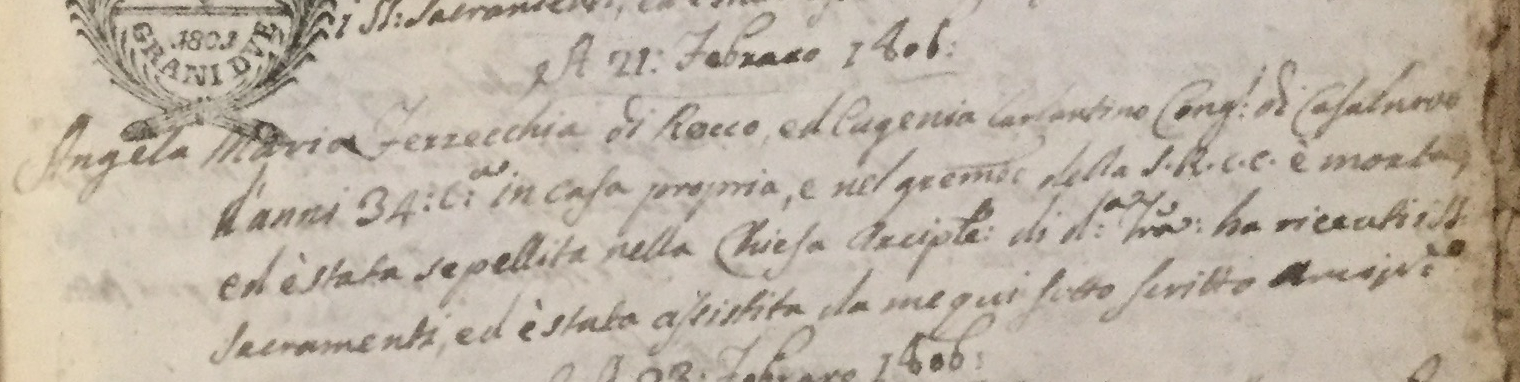 i SS: Sacramenti, ed è
1803
GRANI DVE
A 21: Febraro 1806:
Angela Maria Terzecchia di Rocco, ed Eugenia Conj: di Casalnuovo
d'anni 34: c:ª in casa propria, e nel gremio della S. R. C. C. è morta,
ed è stata sepellita nella Chiesa Arciple: di d:ª Tra: ha ricevuti i SS:
Sacramenti, ed è stata assistita da me qui sotto scritto
A 23: Febraro 1806: